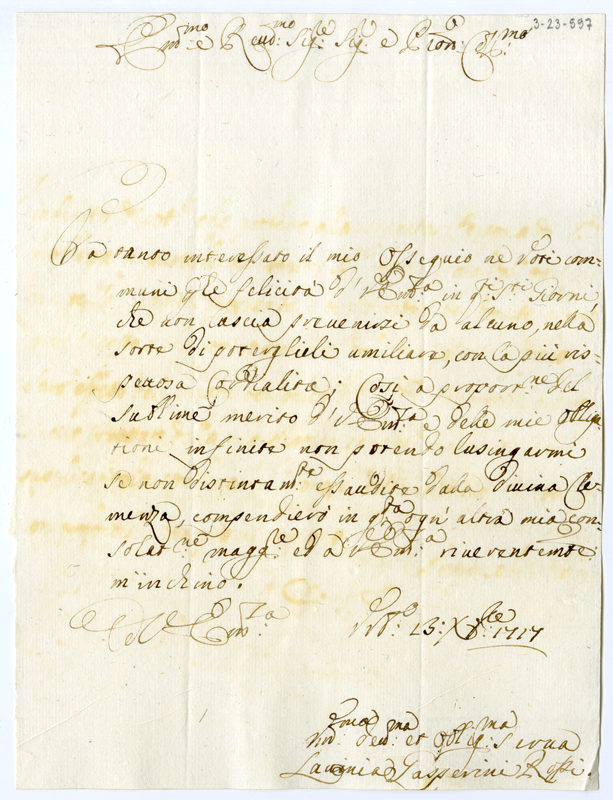 3-23-597
Em:mo e Rend:mo Sig:e Sig:e e Pron: C:mo
Ha tanto interessato il mio Ossequio ne Voti com-
muni p le felicità d' V Em:za in q:ti S:ti Giorni,
che non lascia prevenirsi da alcuno, nella
sorte di poterglieli umiliare, con la più ris-
pettosa Cordialità; Così a proport:ne del
sublime merito d' V Em:za e delle mie obliga-
tioni infinite non potendo lusingarmi
se non distintam:te essaudite dalla Divina Cle-
menza, compendierò in q:ta ogn' altra mia con-
solat:ne magg:re ed a V Em:za riverentemte
m' inchino.
Di V. Em:za
13: Xbre 1717
Dev:ma et Oblig:ma Serva
Lavinia Gasperini Rossi.